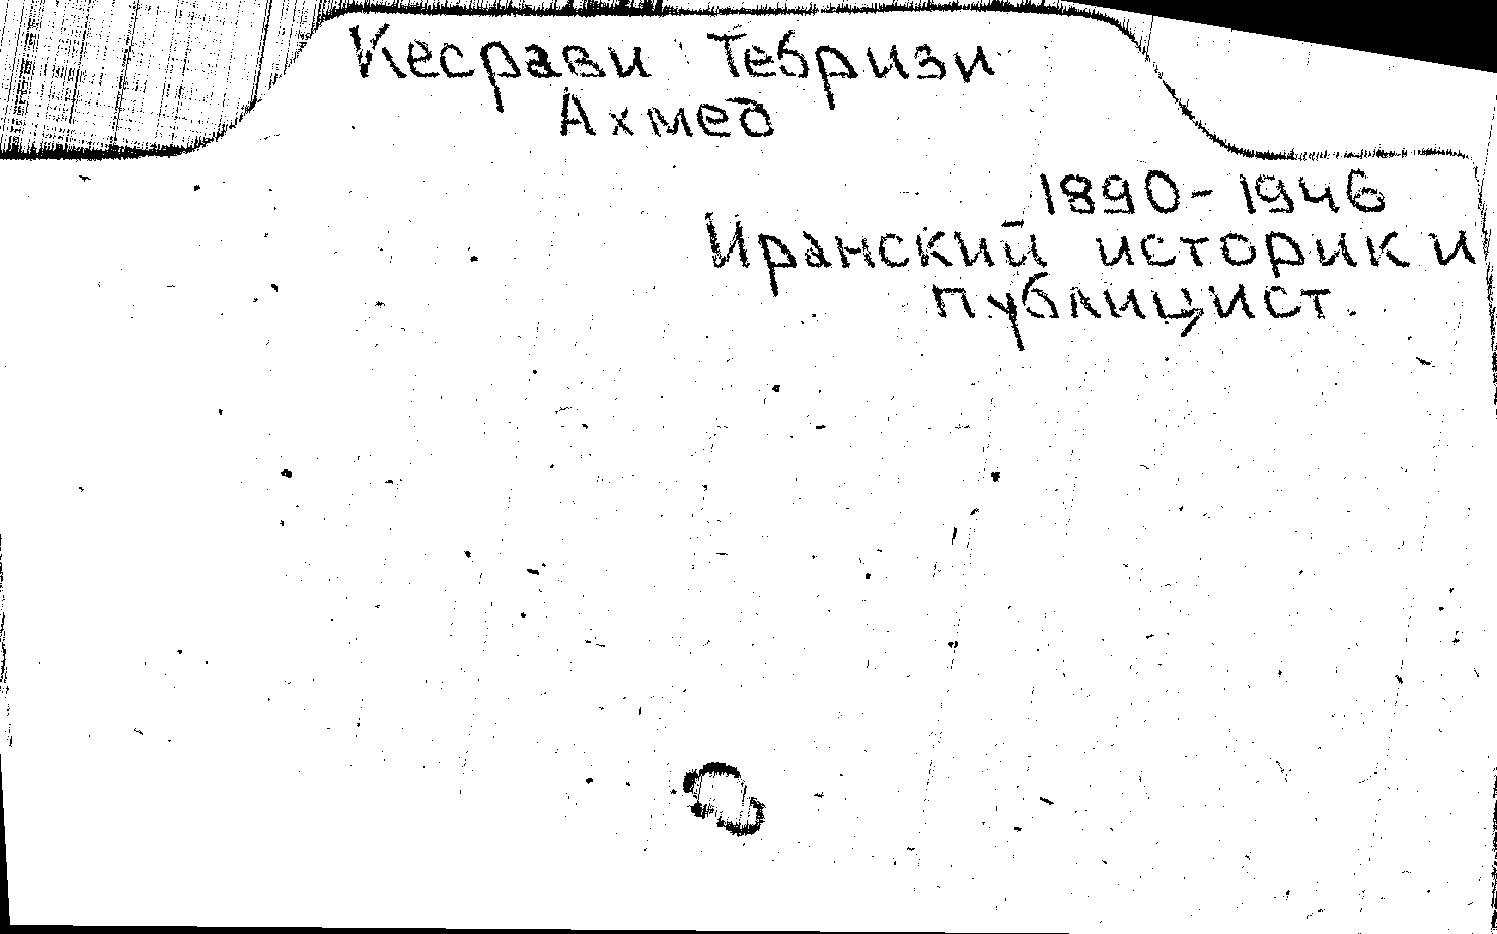 Кесрави Тебризи
Ахмед
1890-1946
Иранский историк и
публицист.